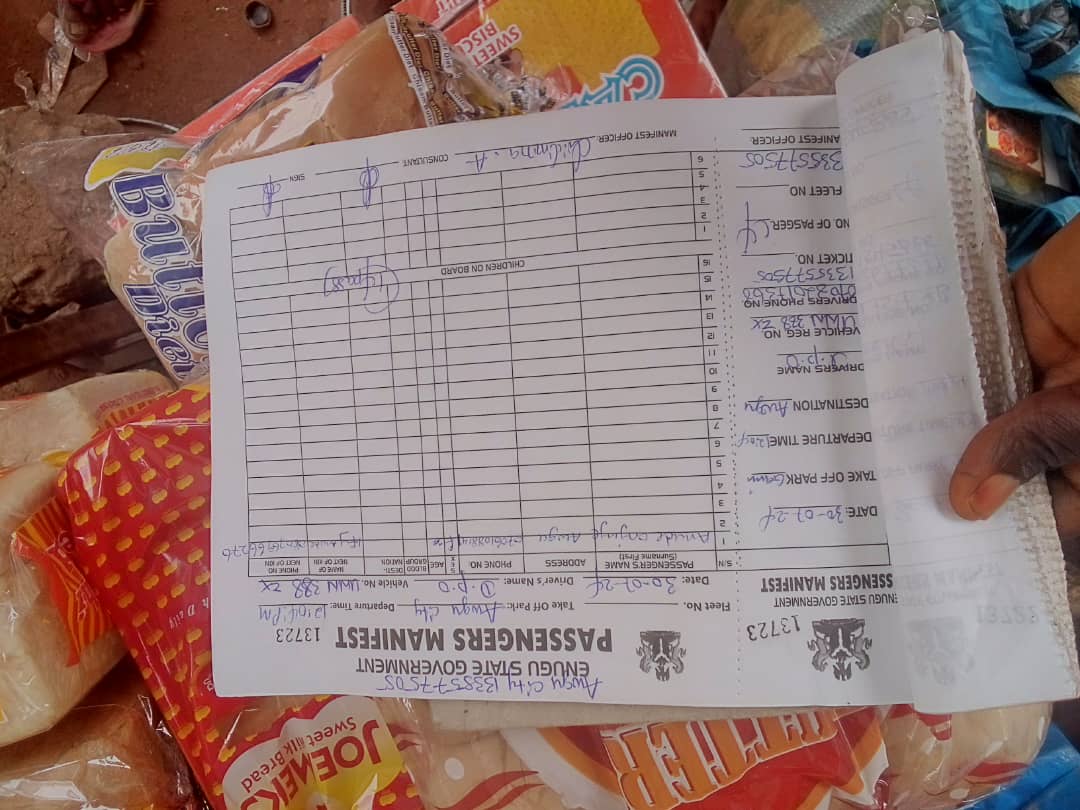 Awgu City 1355577505
ENUGU STATE GOVERNMENT
PASSENGERS MANIFEST
13723
Fleet No. Take Off Park: Awgu City Departure Time: 12:04 PM
Date: 30-07-24 Driver's Name: D.P.O Vehicle No. UWN 388 ZX
S/N PASSENGERS NAME (Surname First) ADDRESS PHONE NO. SEX AGE BLOOD GROUP DESTI-NATION NAME OF NEXT OF KIN PHONE NO NEXT OF KIN
1 Awgu
2
3
4
5
6
7
8
9
10
11
12
13
14
15
16
CHILDREN ON BOARD
(4 pass)
1
2
3
4
5
6
MANIFEST OFFICER: Chidinma. A CONSULTANT SIGN
ENUGU STATE GOVERNMENT
SSENGERS MANIFEST
13723
DATE: 30-07-24
TAKE OFF PARK
DEPARTURE TIME 12:04
DESTINATION Awgu
DRIVERS NAME D.P.O
VEHICLE REG. NO UWN 388 ZX
DRIVERS PHONE NO
TICKET NO. 1355577505
NO. OF PASGER: 4
FLEET NO
1355577505
ANIFEST OFFICER:
SWEET
BISC
Butter
JOENEK
Sweet Milk Bread
TTER